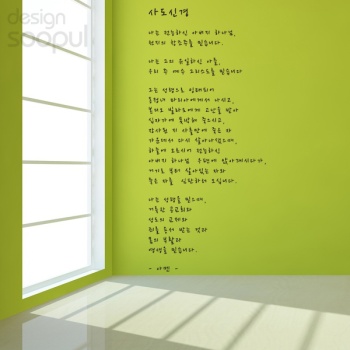 design
soopul
사도신경
나는 전능하신 아버지 하나님,
천지의 창조주를 믿습니다.
나는 그의 유일하신 아들,
우리 주 예수 그리스도를 믿습니다.
그는 성령으로 잉태되어
동정녀 마리아에게서 나시고,
본디오 빌라도에게 고난을 받아
십자가에 못박혀 죽으시고,
장사된 지 사흘만에 죽은 자
가운데서 다시 살아나셨으며,
하늘에 오르시어 전능하신
아버지 하나님 우편에 앉아계시다가,
거기로 부터 살아있는 자와
죽은 자를 심판하러 오십니다.
나는 성령을 믿으며,
거룩한 공교회와
성도의 교제와
죄를 용서 받는 것과
몸의 부활과
영생을 믿습니다.
- 아멘 -